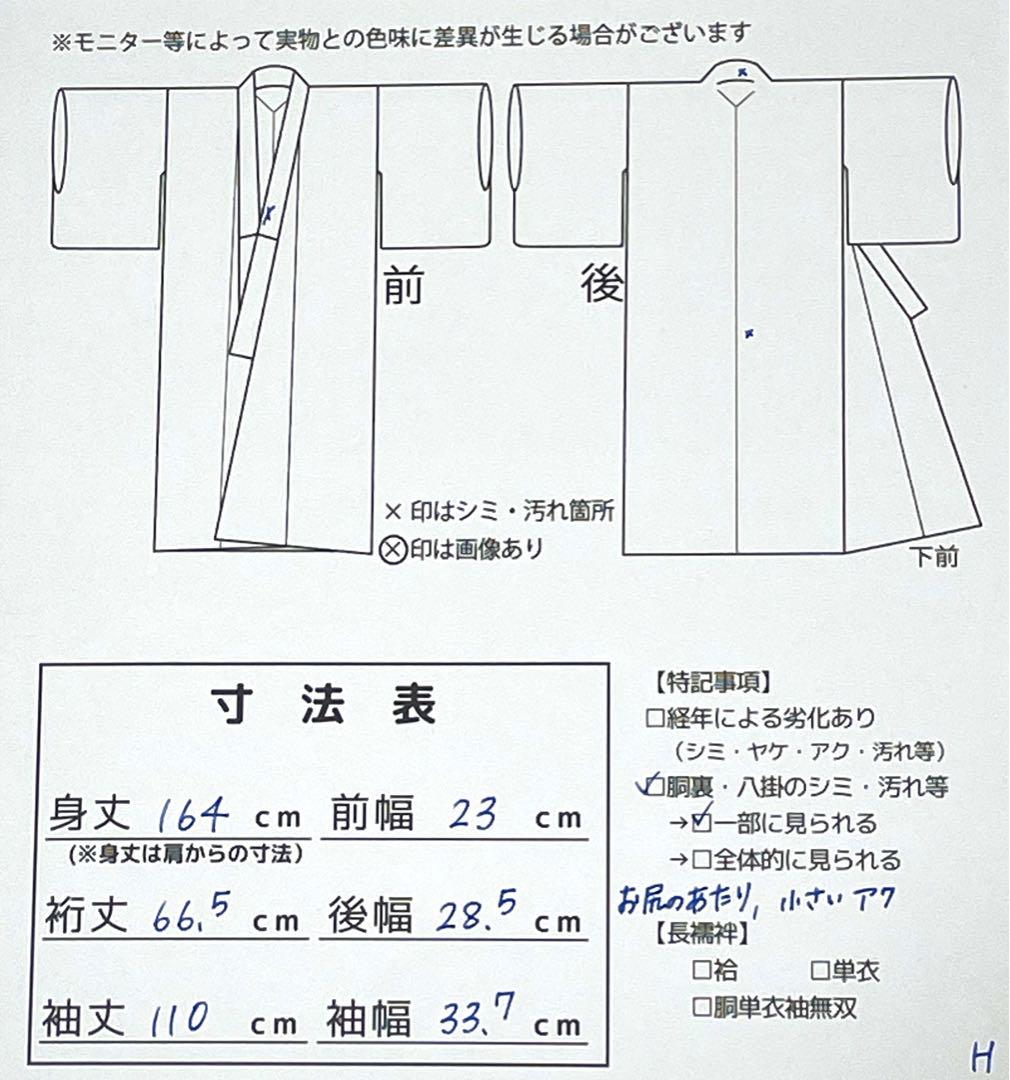 ※モニター等によって実物との色味に差異が生じる場合がございます
前
後
×印はシミ・汚れ箇所
⊗印は画像あり
下前
寸法表
身丈 164 cm 前幅 23 cm
(※身丈は肩からの寸法)
裄丈 66.5 cm 後幅 28.5 cm
袖丈 110 cm 袖幅 33.7 cm
【特記事項】
□経年による劣化あり
（シミ・ヤケ・アク・汚れ等）
☑胴裏・八掛のシミ・汚れ等
→☑一部に見られる
→□全体的に見られる
お尻のあたり, 小さいアク
【長襦袢】
□袷 □単衣
□胴単衣袖無双
H